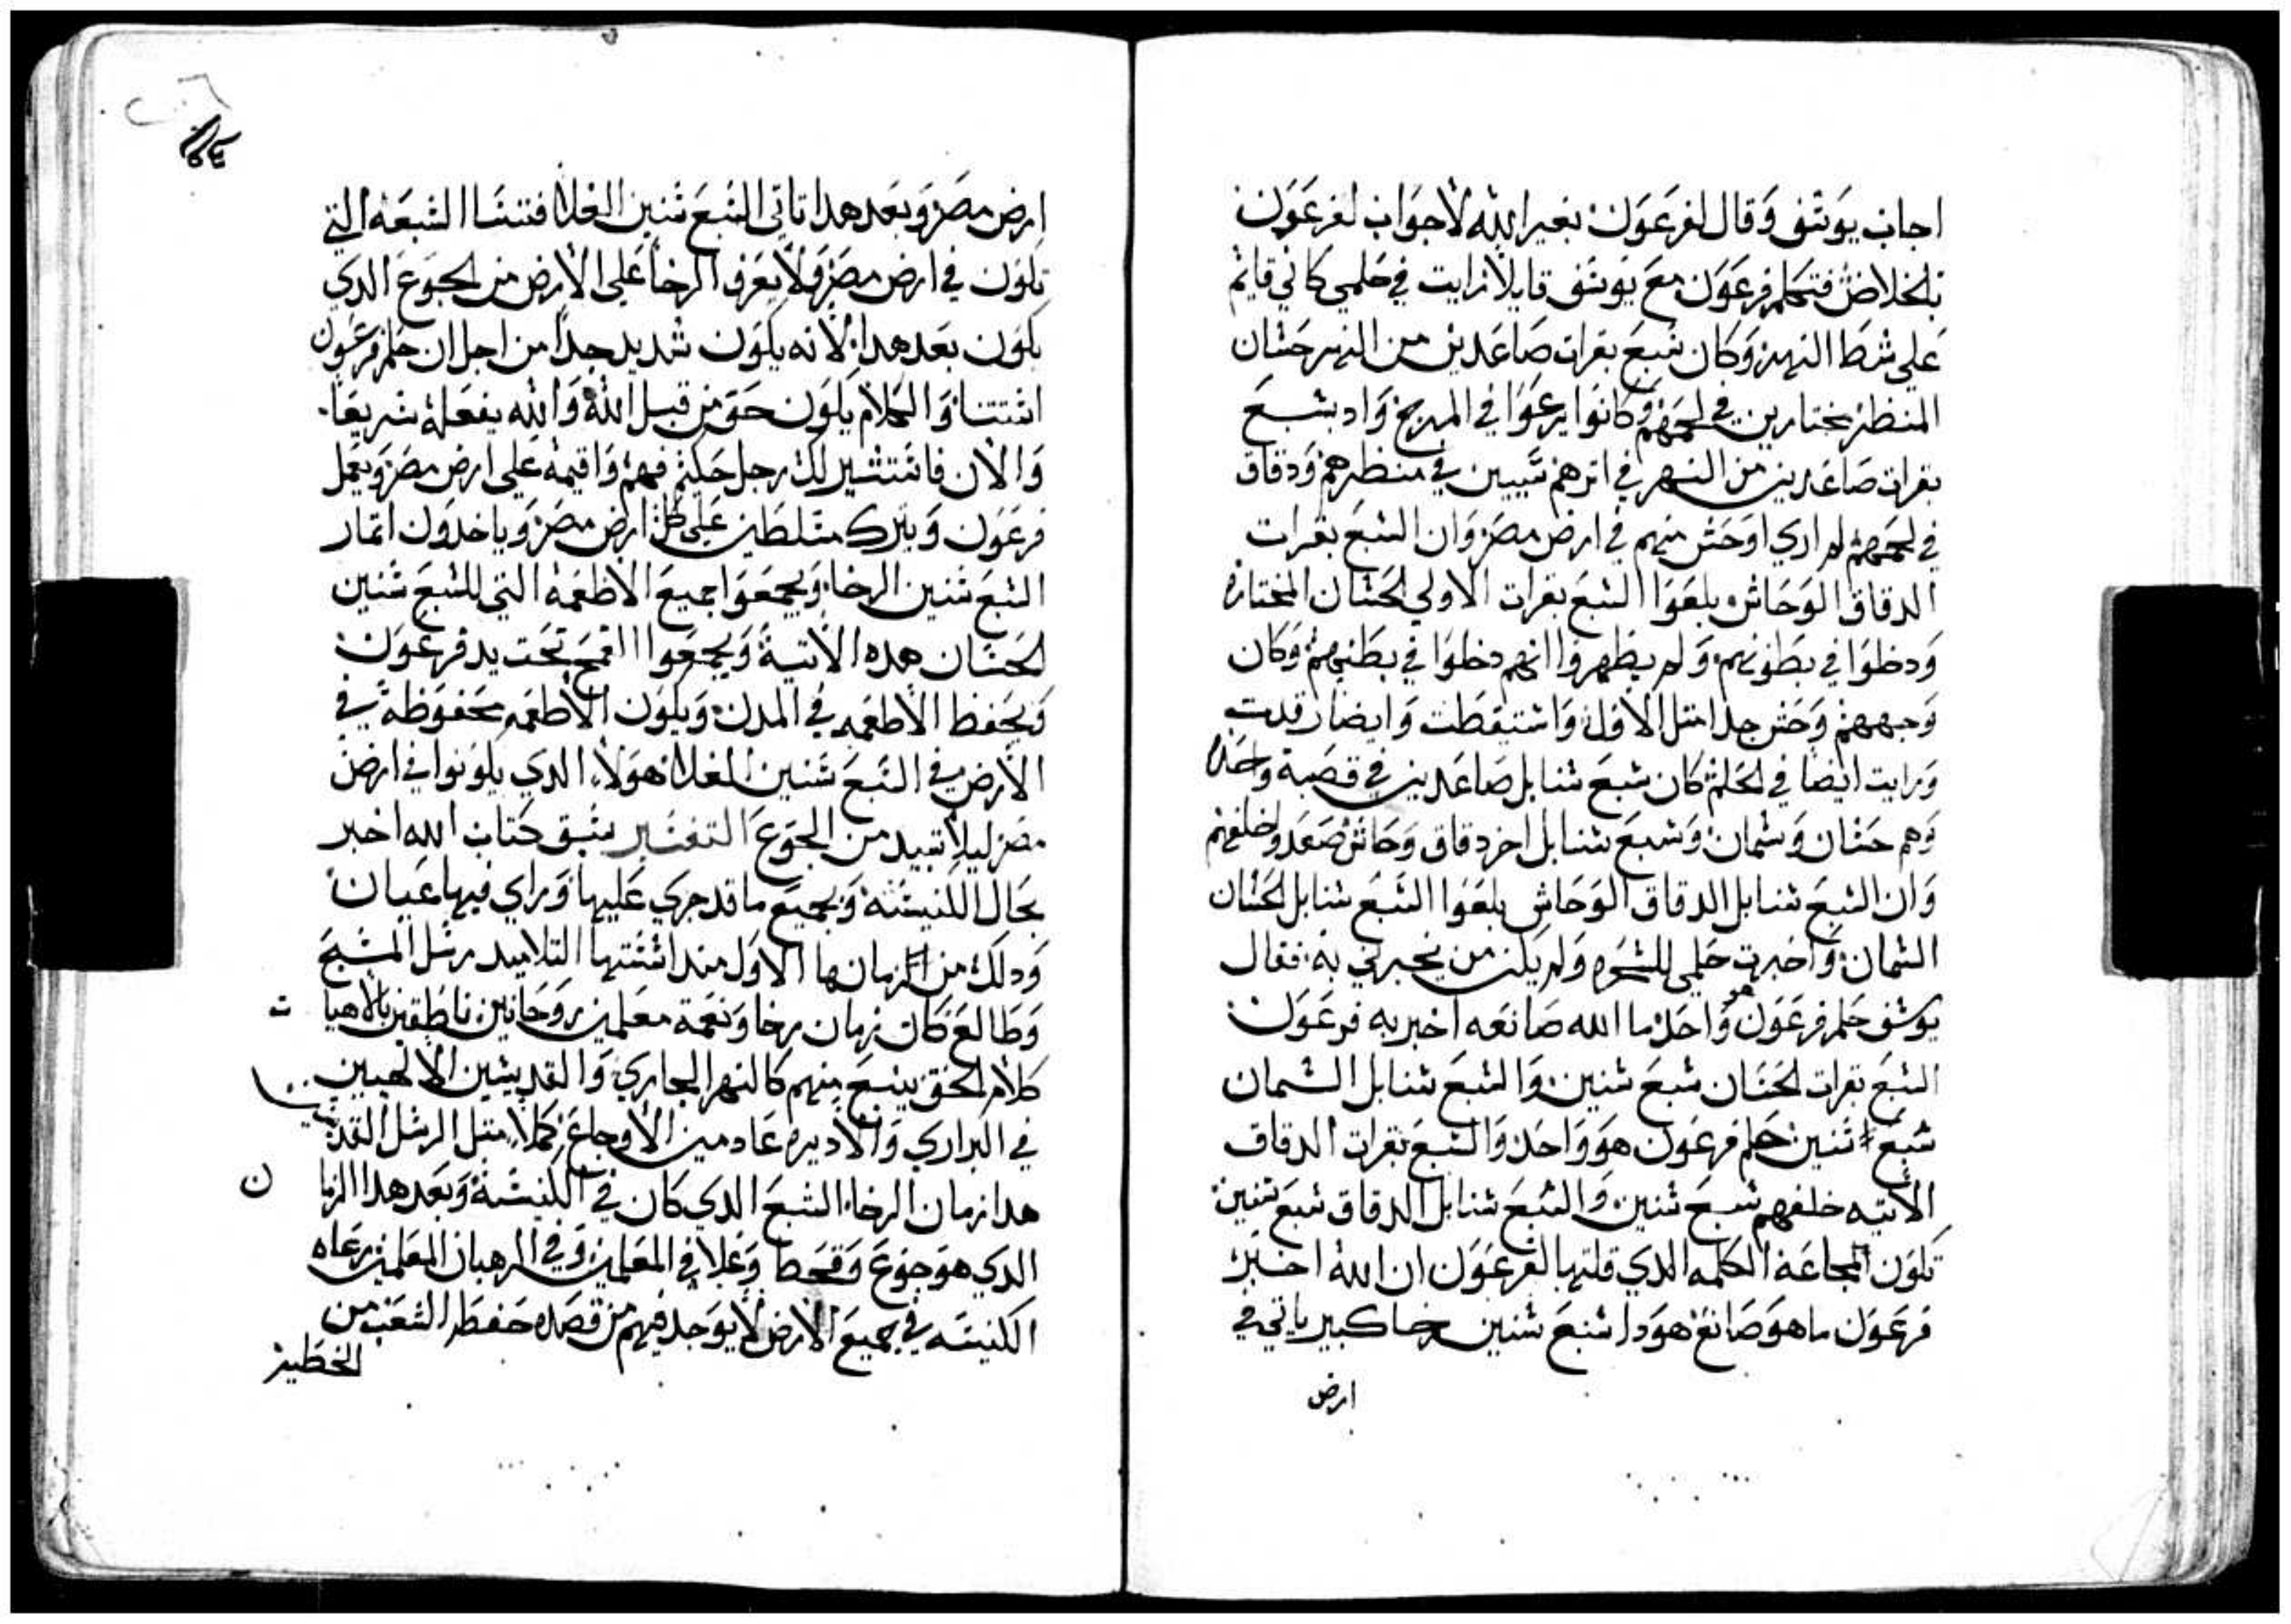 اجاب يوسف وقال لفرعون بغير الله لا جواب لفرعون
بالخلاص فتكلم فرعون مع يوسف قايلا رايت في حلمي كاني قايم
علي شط النهر وكان سبع بقرات صاعدين من النهر حسان
المنظر مختارين في لحمهم وكانوا يرعوا في المرج واد بسبع
بقرات صاعدين من النهر في اترهم سيين في منظرهم ودقاق
في لحمهم لم اري اوحش منهم في ارض مصر وان السبع بقرات
الدقاق الوحاش بلعوا السبع بقرات الاولي الحسان المختاره
ودخلوا في بطونهم ولم يظهروا انهم دخلوا في بطنهم وكان
وجههم وحش جدا متل الاول واستيقطت وايضا رقدت
ورايت ايضا في الحلم كان سبع سنابل صاعدين في قصبة واحدة
وهم حسان وسمان وسبع سنابل اخر دقاق وحاش صعدوا خلفهم
وان السبع سنابل الدقاق الوحاش بلعوا السبع سنابل الحسان
السمان واخبرت حلمي للسحره ولم يكن من يخبرني به فقال
يوسف حلم فرعون هو واحد ما الله صانعه اخبر به فرعون
السبع بقرات الحسان سبع سنين والسبع سنابل السمان
سبع سنين حلم فرعون هو واحد والسبع بقرات الدقاق
الاتيه خلفهم سبع سنين والسبع سنابل الدقاق سبع سنين
تكون المجاعة الكلمه الدي قلتها لفرعون ان الله اخبر
فرعون ما هو صانع هودا سبع سنين رخا كبير ياتي في
ارض
ارض مصر وبعد هدا تاتي السبع سنين الغلا فتنسا السبعة التي
تكون في ارض مصر ولا يعرف الرخا علي الارض من الجوع الدي
يكون بعد هدا لانه يكون شديد جدا من اجل ان حلم فرعون
اتنتنا والكلام يكون حق من قبل الله والله يفعله سريعا
والان فاستشير لك رجل حكيم فهم واقيمه علي ارض مصر ويعمل
فرعون ويترك متسلطين علي كل ارض مصر وياخدون اتمار
السبع سنين الرخا ويجمعوا جميع الاطعمة التي للسبع سنين
الحسان هده الاتية ويجمعوا القمح تحت يد فرعون
ويحفط الاطعمه في المدن ويكون الاطعمه محفوظة في
الارض في السبع سنين الغلا هولاء الدي يكونوا في ارض
مصر ليلا تبيد من الجوع التفسير سبق كتاب الله اخبر
بحال الكنيسة وبجميع ما قد جري عليها وراي فيها عيان
ودلك من الزمانها الاول مند اسستها التلاميد رسل المسيح
وطالع كان زمان رخا ونعمة معلمين روحانين ناطقين بالاهيا ت
كلام الحق ينبع منهم كالنهر الجاري والقديسين الالهيين
في البراري والاديره عادمين الاوجاع كملا متل الرسل القديسين
هدا زمان الرخا الشبع الدي كان في الكنيسة وبعد هدا الزما ن
الدي هو جوع وقحط وغلا في المعلمين وفي الرهبان المعلمين رعاه
الكنيسه في جميع الارض لا يوجد فيهم من قصده حفط الشعب من
الخطيه